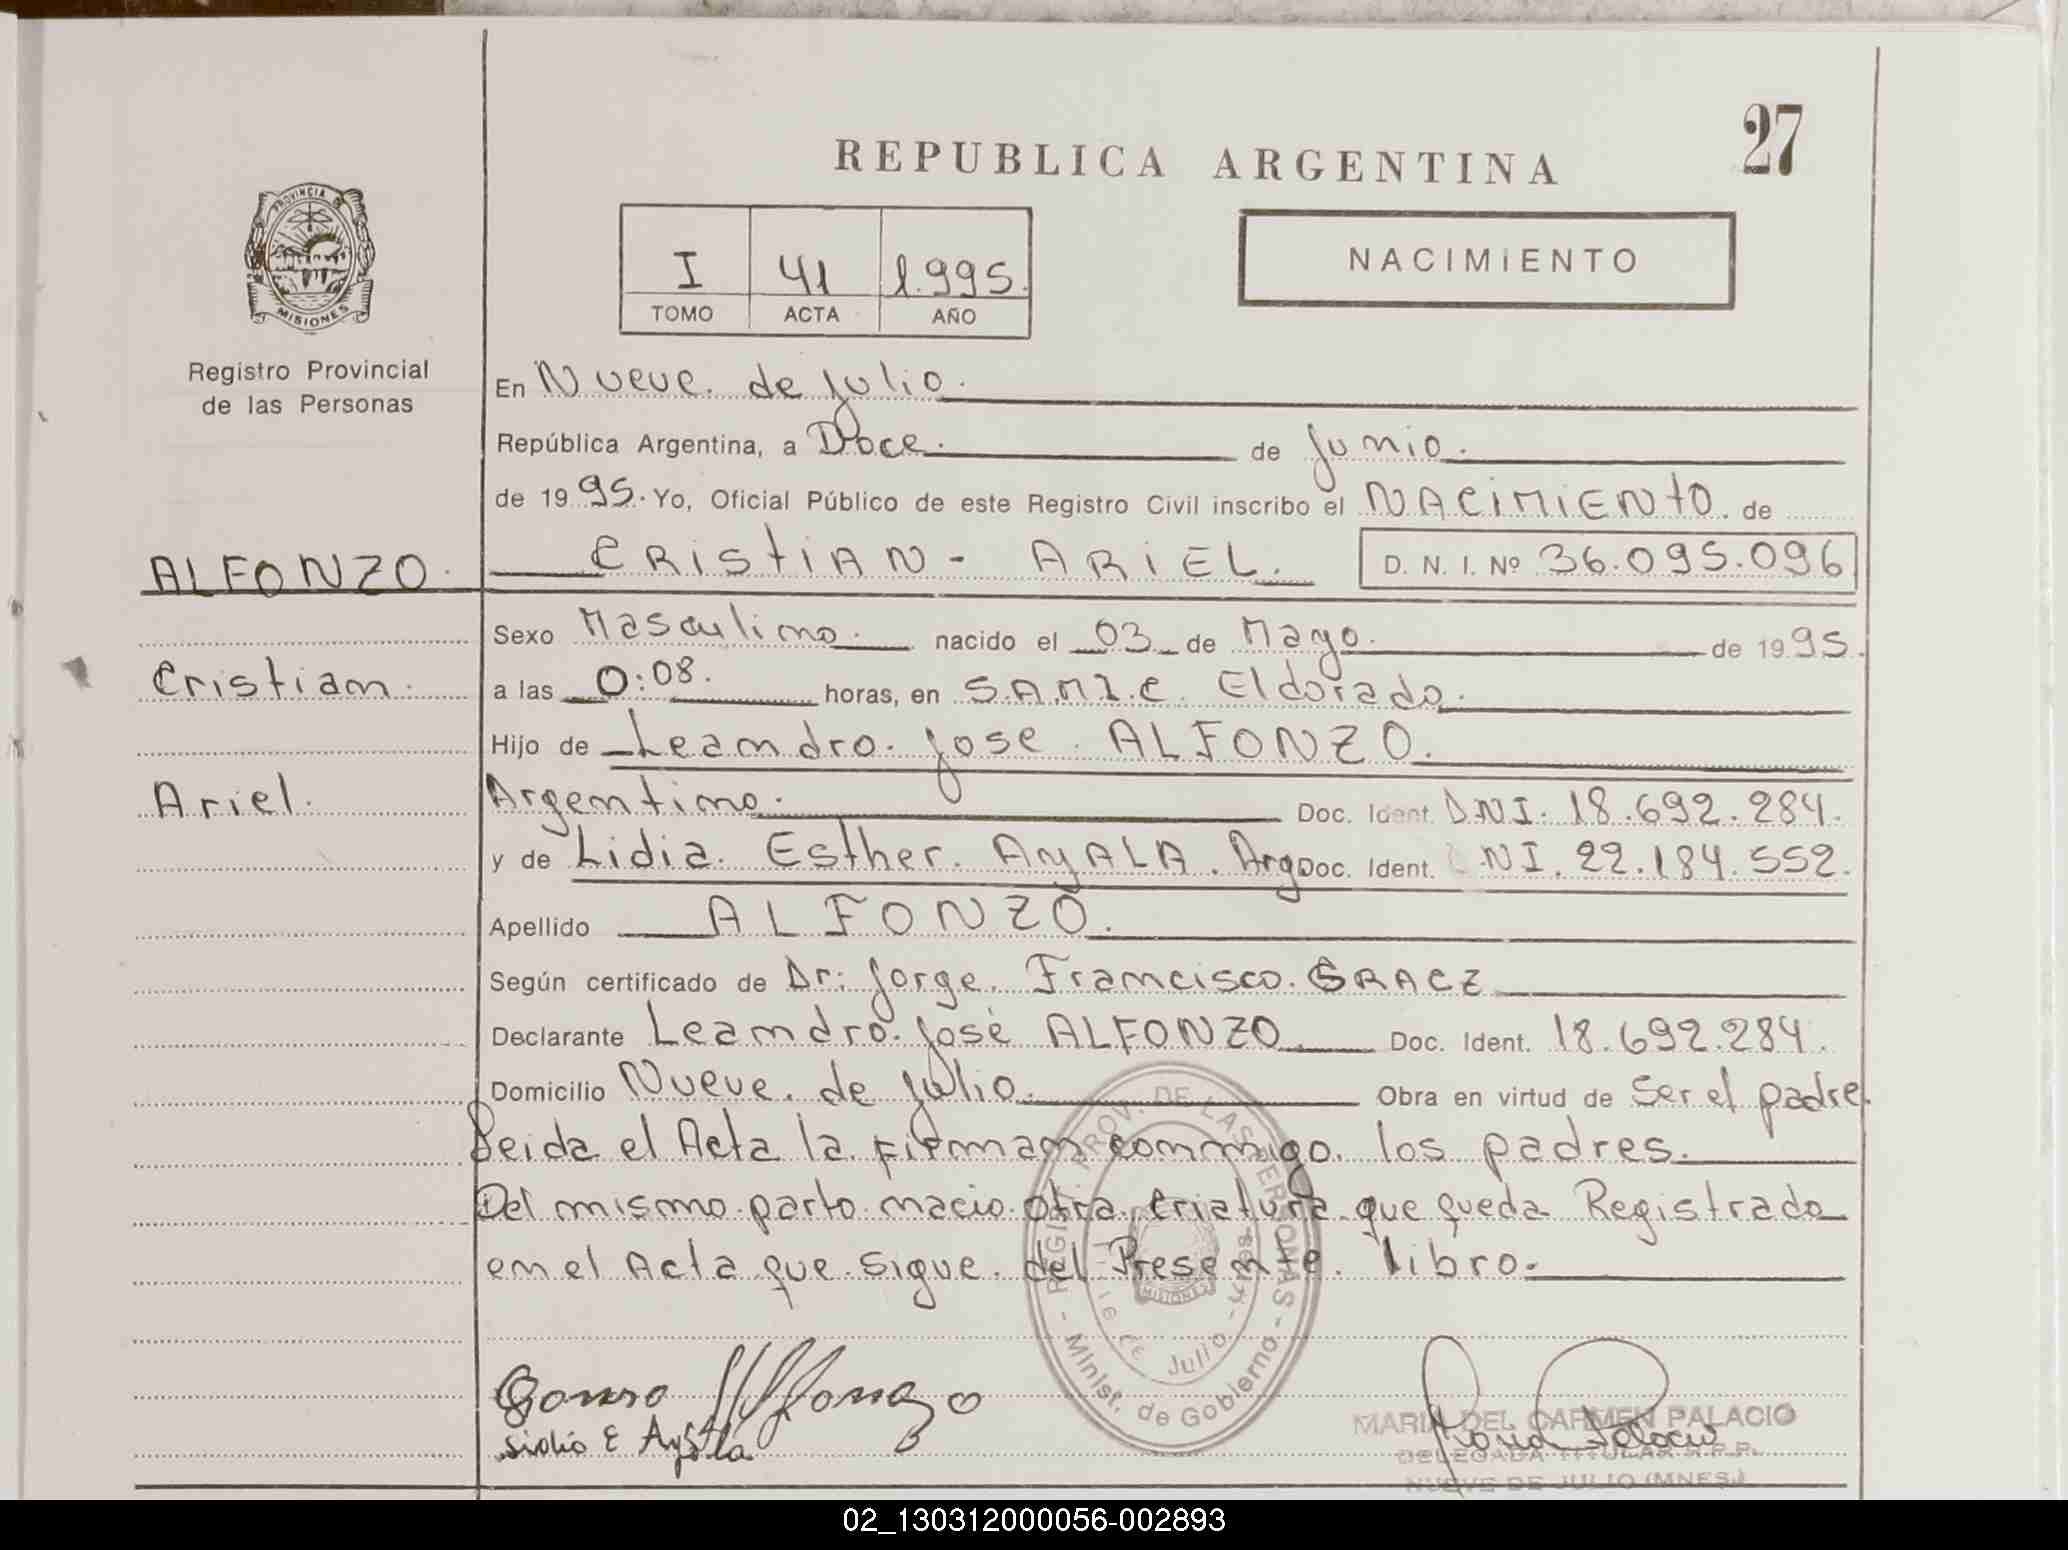 27
REPUBLICA ARGENTINA
PROVINCIA DE
MISIONES
I 41 1.995.
TOMO ACTA AÑO
NACIMIENTO
Registro Provincial
de las Personas
En Nueve de Julio.
República Argentina, a Doce. de Junio.
de 1995. Yo, Oficial Público de este Registro Civil inscribo el NACIMIENTO. de
ALFONZO. CRISTIAN - ARIEL. D. N. I. Nº 36.095.096
Sexo Masculino. nacido el 03 de Mayo. de 1995.
Cristian. a las 0:08. horas, en S.A.M.I.C. Eldorado.
Hijo de Leandro José ALFONZO.
Ariel. Argentino. Doc. Ident. DNI. 18.692.284.
y de Lidia Esther AyALA. Arg. Doc. Ident. DNI. 22.184.552.
Apellido ALFONZO.
Según certificado de Dr: Jorge Francisco
Declarante Leandro José ALFONZO Doc. Ident. 18.692.284.
Domicilio Nueve de Julio. Obra en virtud de Ser el padre.
Leida el Acta la Firman conmigo los padres.
Del mismo parto nacio otra criatura que queda Registrada
en el Acta que sigue del Presente libro.
REGIST. PROV. DE LAS PERSONAS - Minist. de Gobierno -
de Julio - Mnes.
MISIONES
MARIA DEL CARMEN PALACIO
DELEGADA TITULAR R.P.P.
NUEVE DE JULIO (MNES.)
02_130312000056-002893